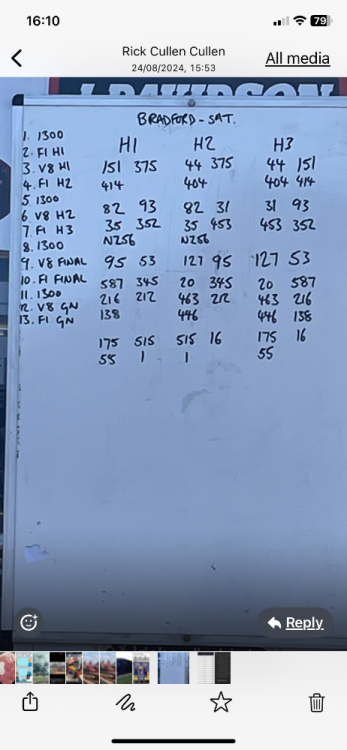 16:10
79
Rick Cullen Cullen
24/08/2024, 15:53
All media
J DAVIDSON
BRADFORD - SAT.
1. 1300
2. F1 H1
3. V8 H1
4. F1 H2
5 1300
6. V8 H2
7. F1 H3
8. 1300
9. V8 FINAL
10. F1 FINAL
11. 1300
12. V8 GN
13. F1 GN
H1 H2 H3
151 375 44 375 44 151
414 404 404 414
82 93 82 31 31 93
35 352 35 453 453 352
NZ56 NZ56
95 53 127 95 127 53
587 345 20 345 20 587
216 212 463 212 463 216
138 446 446 138
175 515 515 16 175 16
55 1 1 55
Reply